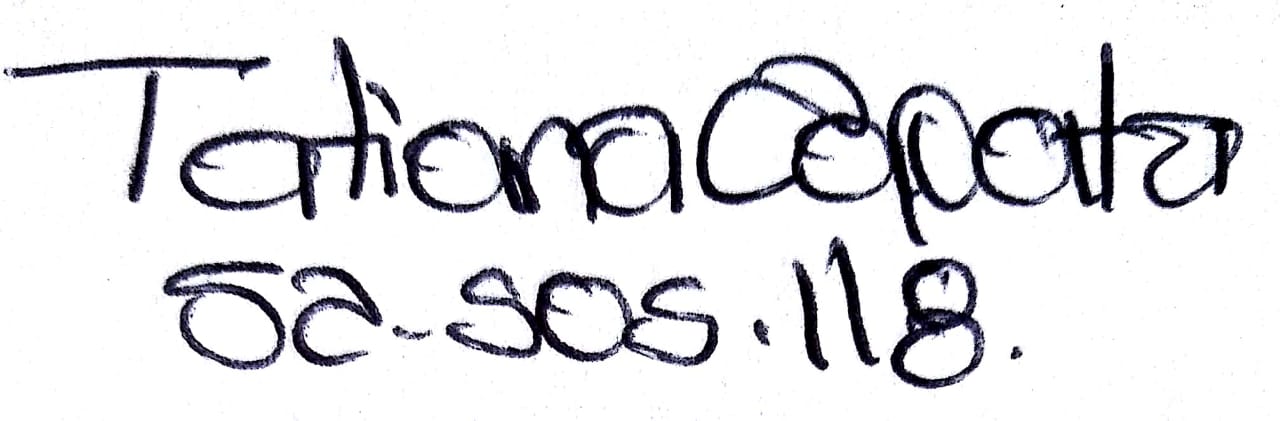 Tatiana Cepata
52-505.118.